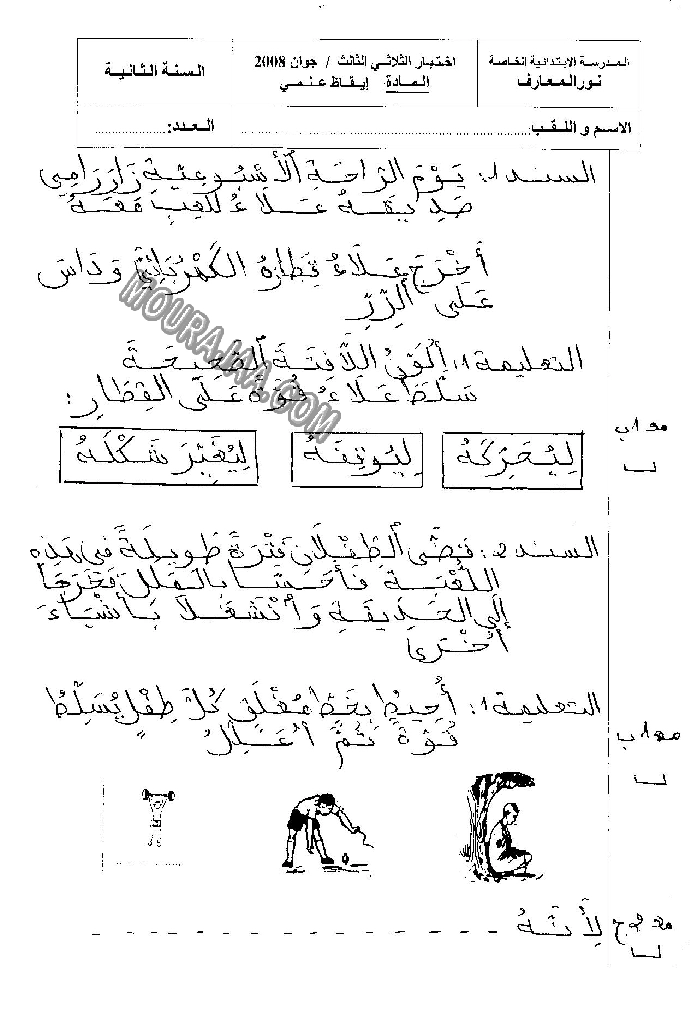 المدرسة الابتدائية الخاصة
نور المعارف
اختبار الثلاثي الثالث / جوان 2008
المادة إيقاظ علمي
السنة الثانية
الاسم و اللقب:
العدد:
السند 1: يَوْمَ الرَّاحَةِ الْأُسْبُوعِيَّةِ زَارَ رَامِي
صَدِيقَهُ عَلَاءُ لِلَعِبِ مَعَهُ
أَخْرَجَ عَلَاءُ قِطَارَهُ الكَهْرُبَائِيَّ وَدَاسَ
عَلَى الزِّرِّ
التعليمة 1: أُلَوِّنُ اللَّافِتَةَ الصَّحِيحَةَ
سَلَّطَ عَلَاءُ قُوَّةً عَلَى القِطَارِ:
مع 1 ب
لِيُحَرِّكَهُ
لِيُوقِفَهُ
لِيُغَيِّرَ شَكْلَهُ
السند 2: قَضَّى الطِّفْلَانِ فَتْرَةً طَوِيلَةً فِي هَذِهِ
اللُّعْبَةِ فَأَحَسَّا بِالمَلَلِ فَخَرَجَا
إِلَى الحَدِيقَةِ وَانْشَغَلَا بِأَشْيَاءَ
أُخْرَى
التعليمة 1: أُحِيطُ بِخَطٍّ مُغْلَقٍ كُلَّ طِفْلٍ يُسَلِّطُ
قُوَّةً ثُمَّ أُعَلِّلُ
مع 1 ب
لِأَنَّهُ
MOURAJAA.COM